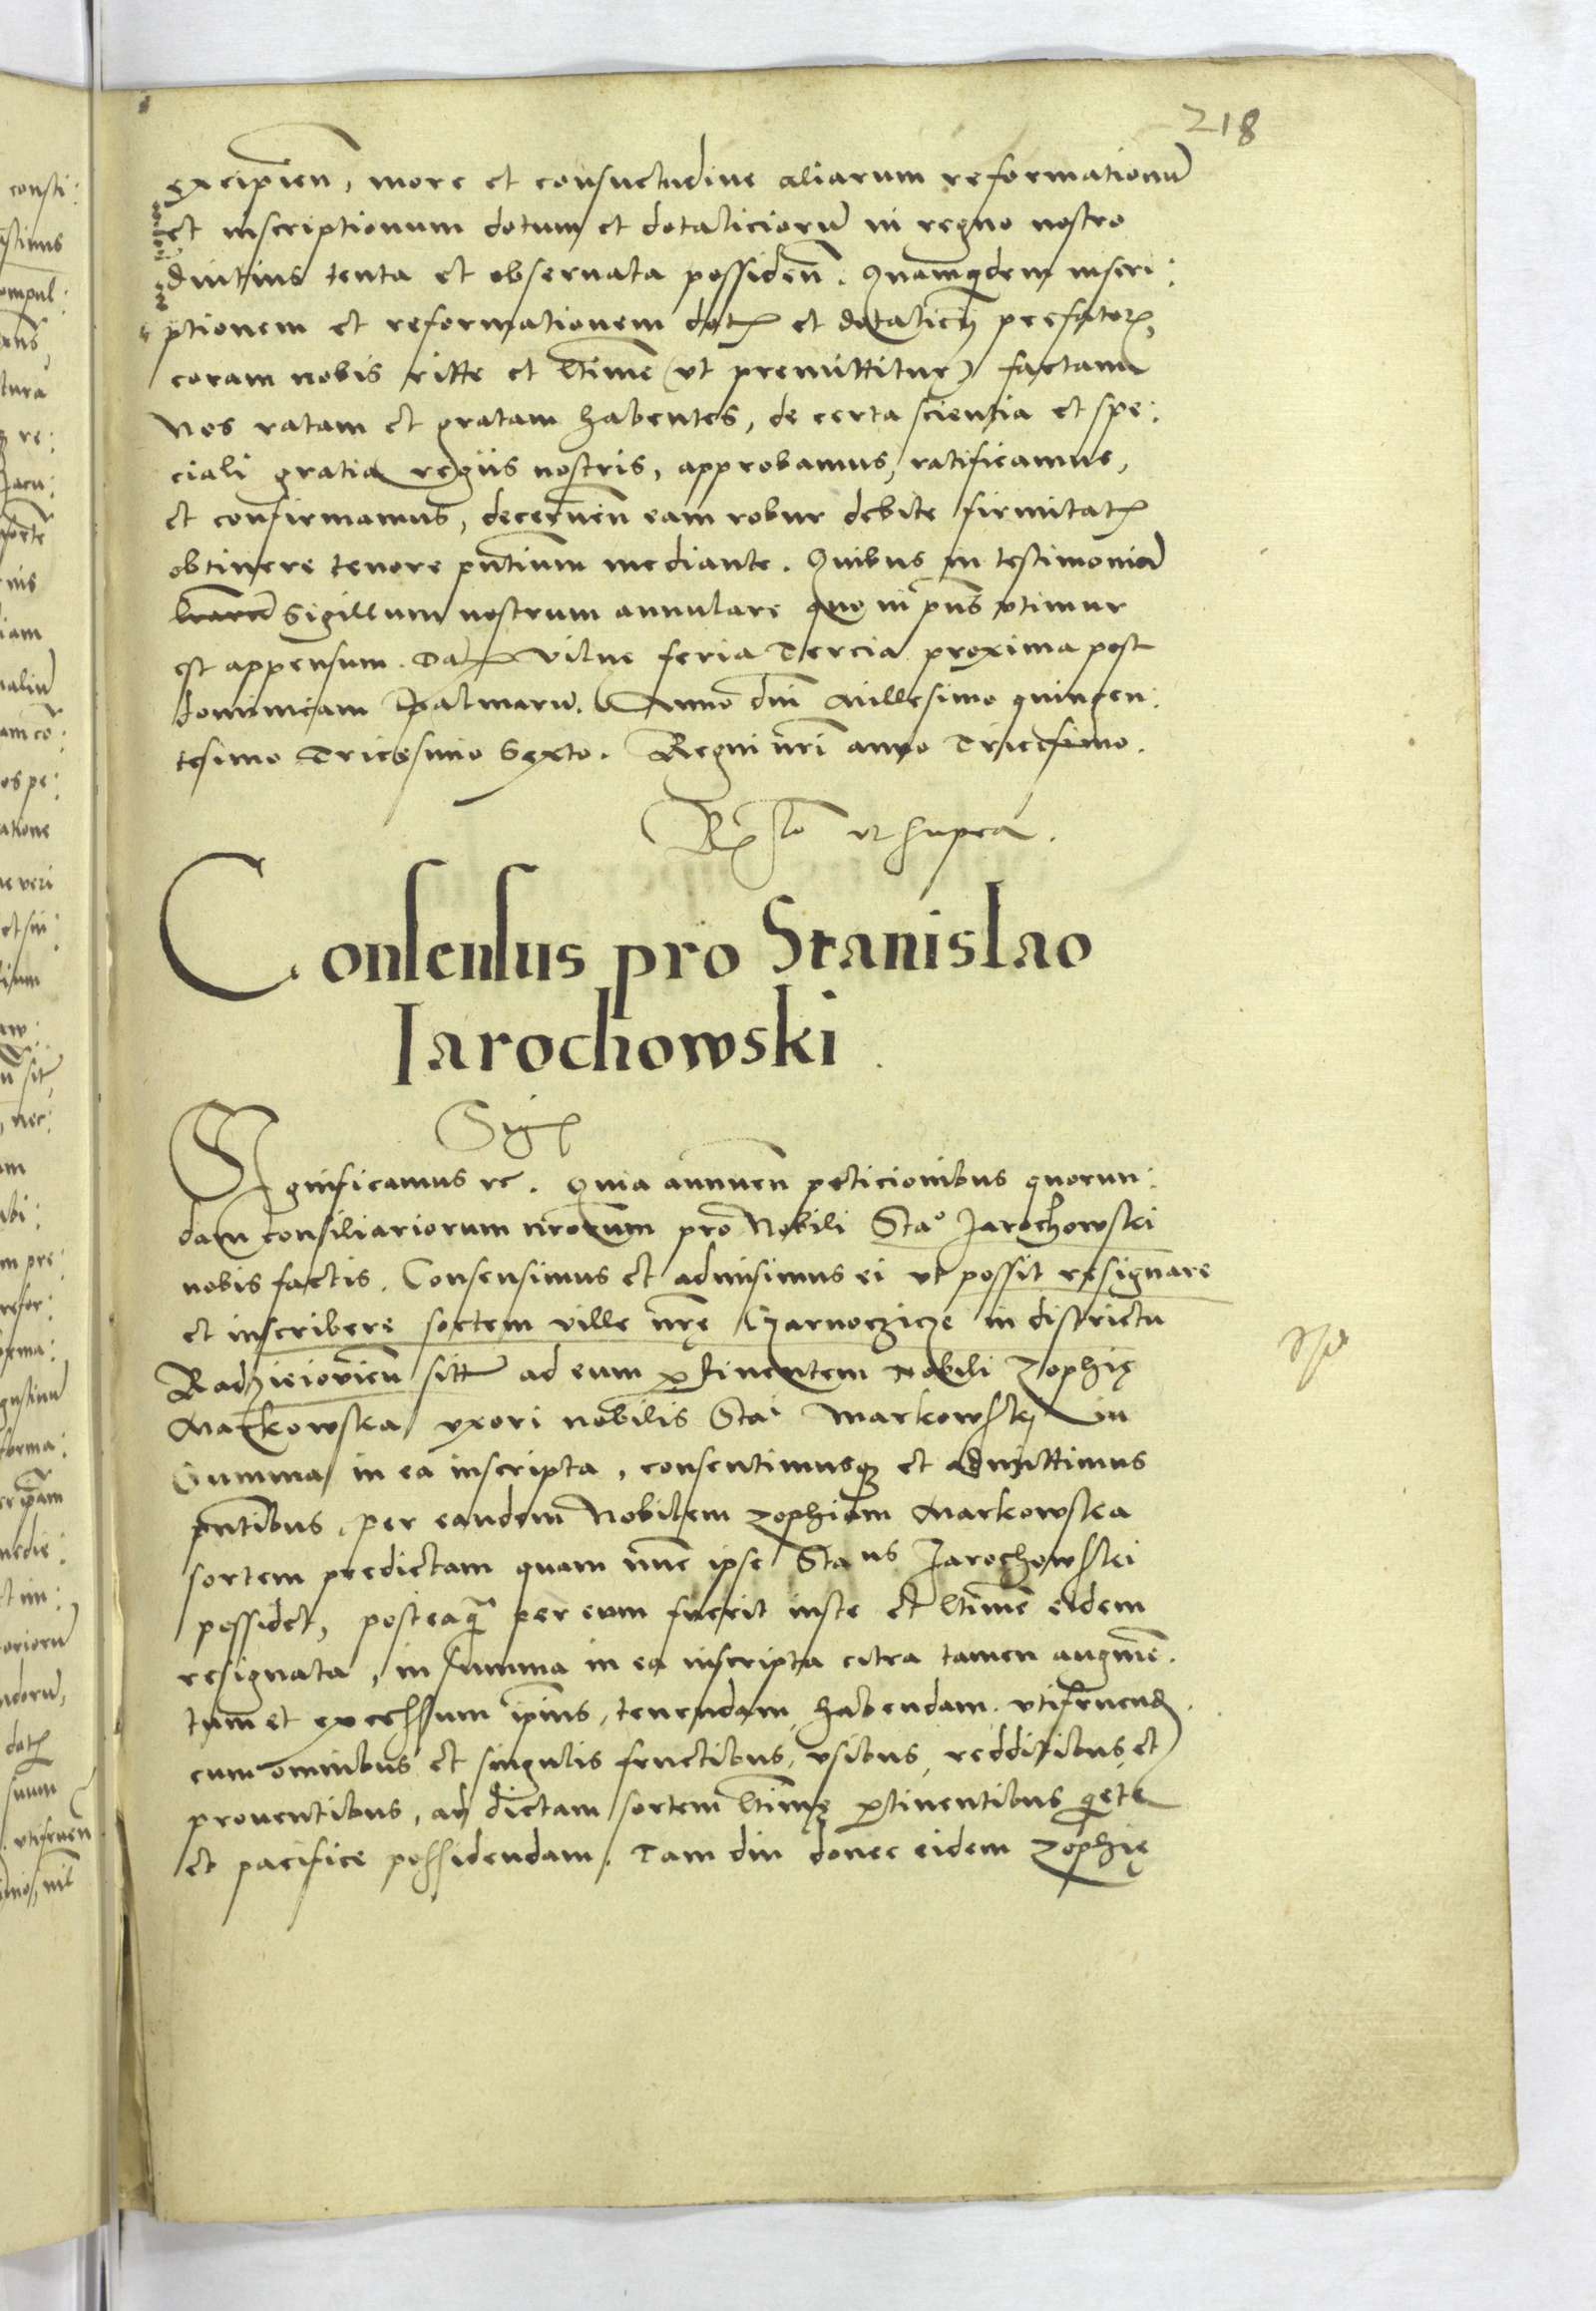 218
excipien, more et consuetudine aliarum reformationu
et inscriptionum dotum et dotalicioru in regno nostro
diutius tenta et obseruata possiden. Quamqdem inscri:
ptionem et reformationem dot et dotalicy prefator,
coram nobis ritte et ltime (vt premittitur) factam
Nos ratam et gratam habentes, de certa scientia et spe:
ciali gratia regiis nostris, approbamus, ratificamus,
et confirmamus, decernen eam robur debite firmitat
obtinere tenore pntium mediante. Quibus in testimoniu
Sigillum nostrum annulare quo in pns vtimur
est appensum. Dat Vilne feria Tercia proxima post
dominicam Palmaru. Anno dni Millesimo quingen:
tesimo Tricesimo Sexto. Regni nri anno Tricesimo.
R to vt supra.
Consensus pro Stanislao
Iarochowski.
Sig
Significamus rc. Quia annuen peticionibus quorun:
dam consiliariorum nrorum pro Nobili Stao Jarochowski
nobis factis. Consensimus et admisimus ei vt possit resignare
et inscribere sortem ville nrę Czarnoczicze in districtu
Radzieiouien sitt ad eum pertinentem Nobili Zophię
Markowska vxori nobilis Stai Markowskj in
Summa in ea inscripta, consentimusq et admittimus
pntibus, per eandem Nobilem Zophiam Markowska
sortem predictam quam nunc ipse Staus Jarochowski
possidet, posteaq per eum fuerit iuste et ltime eidem
resignata, in summa in ea inscripta citra tamen augmen.
tum et excessum ipius, tenendam, habendam. vtifruend
cum omnibus et singulis fructibus, vsibus, redditibus et
prouentibus, ad dictam sortem ltimę pertinentibus qete
et pacifice possidendam. Tam diu donec eidem Zophię